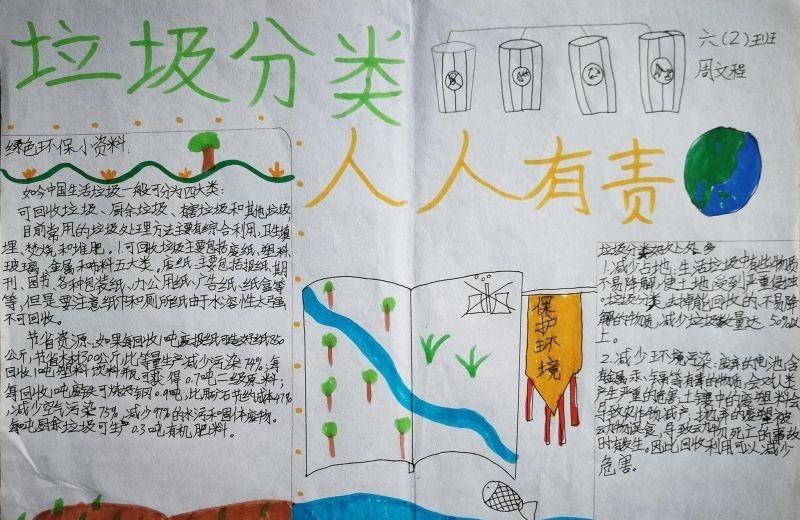 垃圾分类
人人有责
六(2)班
周文程
绿色环保小资料:
如今中国生活垃圾一般可分为四大类:
可回收垃圾、厨余垃圾、有害垃圾和其他垃圾
目前常用的垃圾处理方法主要有综合利用,卫生填
埋、焚烧和堆肥。1.可回收垃圾主要包括废纸,塑料,
玻璃,金属和布料五大类。废纸:主要包括报纸、期
刊、图书、各种包装纸、办公用纸、广告纸、纸盒等
等,但是要注意纸巾和厕所纸由于水溶性太强
不可回收。
节省资源:如果每回收1吨废报纸可造好纸850
公斤,节省木材300公斤,比等量生产减少污染74%;每
回收1吨塑料饮料瓶可获得0.7吨二级原料;
每回收1吨废铁可炼好钢0.9吨,比用矿石节约成本47%
,减少空气污染75%,减少97%的水污和固体废物。
每吨厨余垃圾可生产0.3吨有机肥料。
保护环境
垃圾分类好处多
1.减少占地:生活垃圾中有些物质
不易降解,使土地受到严重侵蚀
。垃圾分类,去掉能回收的、不易降
解的物质,减少垃圾数量达50%以
上。
2.减少环境污染:废弃的电池含
有金属汞、镉等有毒的物质,会对人类
产生严重的危害,土壤中的废塑料会
导致农作物减产,抛弃的废塑被
动物误食,导致动物死亡的事故
时有发生。因此回收利用可以减少
危害。